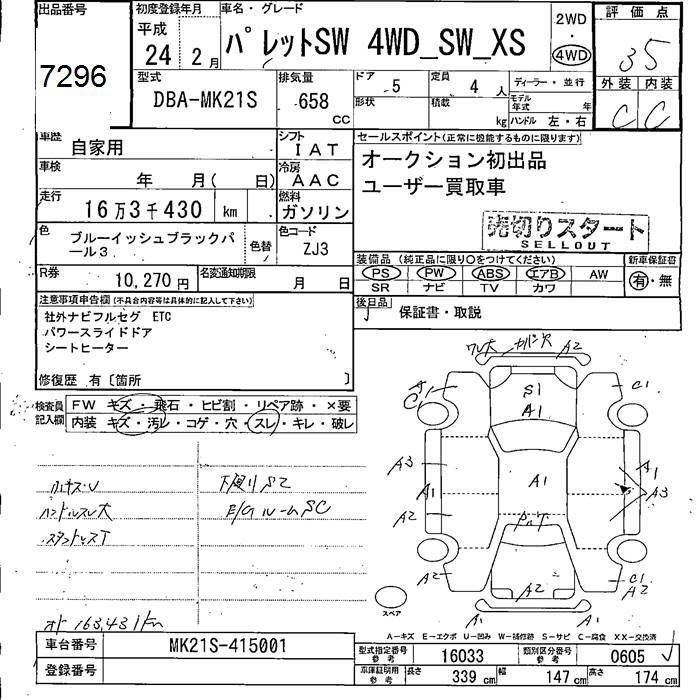 出品番号
7296
初度登録年月
平成
24 2月
車名・グレード
パレットSW 4WD_SW_XS
2WD
・
4WD
評価点
35
外装 内装
C C
型式
DBA-MK21S
排気量
658
CC
ドア
5
定員
4 人
ディーラー・並行
形状
積載
kg
モデル年式
年
ハンドル 左・右
車歴
自家用
シフト
IAT
車検
年 月( 日)
冷房
AAC
走行
16万3千430 km
燃料
ガソリン
色
ブルーイッシュブラックパ
ール3
色替
色コード
ZJ3
R券
10,270円
名変通知期限
月 日
セールスポイント(正常に機能するものに限ります)
オークション初出品
ユーザー買取車
売切りスタート
SELLOUT
装備品 (純正品に限り○をつけてください)
新車保証書
PS PW ABS エアB AW
有・無
SR ナビ TV カワ
後日品
保証書・取説
注意事項申告欄(不具合内容等は具体的に記入して下さい)
社外ナビフルセグ ETC
パワースライドドア
シートヒーター
修復歴 有〔箇所 〕
検査員
記入欄
FW キズ・飛石・ヒビ割・リペア跡・×要
内装 キズ・汚レ・コゲ・穴・スレ・キレ・破レ
ハンドルスレ大
下廻りSZ
E/GルームSC
163,431km
A2
S1
A1
C1
A3
A1
A2
A1
A1
A3
A2
A2
C1
A2
A1
A1
スペア
A-キズ E-エクボ U-凹み W-補修跡 S-サビ C-腐食 XX-交換済
車台番号
MK21S-415001
登録番号
型式指定番号
参考
16033
類別区分番号
参考
0605
車庫証明用
参考
長さ 339 cm 幅 147 cm 高さ 174 cm